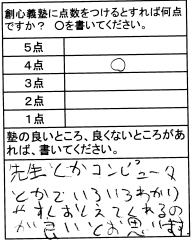 創心義塾に点数をつけるとすれば何点
ですか？ ○を書いてください。
5点
4点 ○
3点
2点
1点
塾の良いところ、良くないところがあ
れば、書いてください。
先生とかコンピュータ
とかでいろいろわかり
やすくおしえてくれるの
が良いと思います